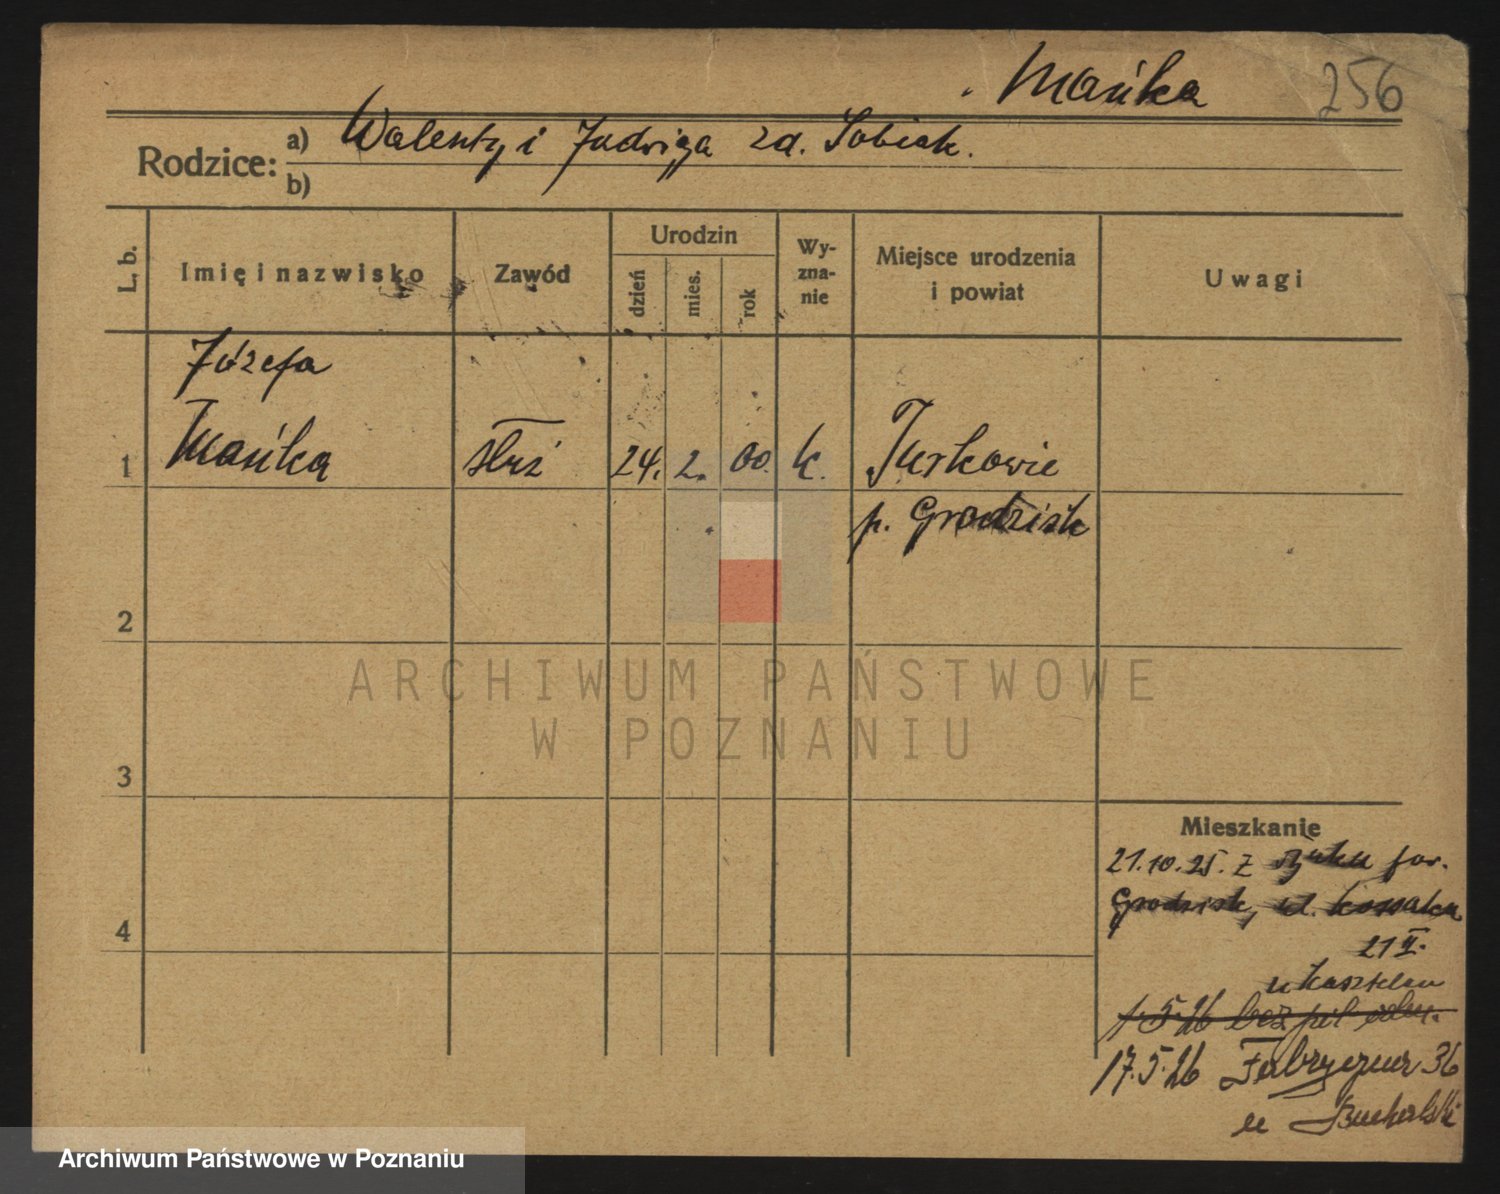 Mańka 256
Rodzice: a) Walenty i Jadwiga zd. Sobiak.
b)
L. b. Imię i nazwisko Zawód Urodzin dzień mies. rok Wy-zna-nie Miejsce urodzenia i powiat Uwagi
Józefa
1 Mańka służ 24. 2. 00. k. Turkowie
p. Grodzisk
2
ARCHIWUM PAŃSTWOWE
W POZNANIU
3
Mieszkanie
21.10.25. z
4 Grodzisk, ul. Kossaka
21 II.
u Kasztelan
1.5.26 bez
17.5.26 Fabryczna 36
u Bucholski
Archiwum Państwowe w Poznaniu